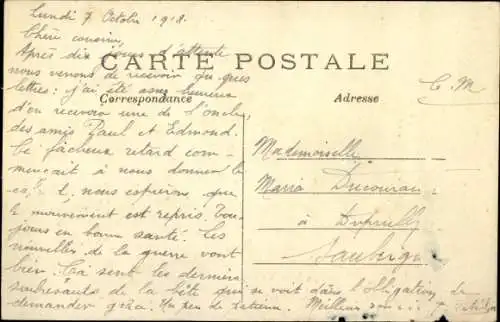 Lundi 7 Octobre 1918.
Chère cousine,
Après dix jours d'attente
nous venons de recevoir qu ques
lettres : j'ai été assez heureux
d'en recevoir une de l'oncle,
des amis Paul et Edmond.
CARTE POSTALE
C. M
Correspondance
Adresse
Ce fâcheux retard com-
mençait à nous donner le
nous espérons que
le mouvement est repris. Tou-
jours en bonne santé. Les
nouvelles de la guerre vont
bien. Ça sent les derniers
soubresauts de la bête qui se voit dans l'obligation de
demander grâce. Un peu de patience. Meilleur
Mademoiselle
Maria
à